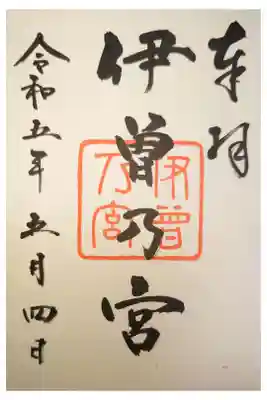 奉拝
伊曽乃宮
伊曽乃宮
令和五年五月四日